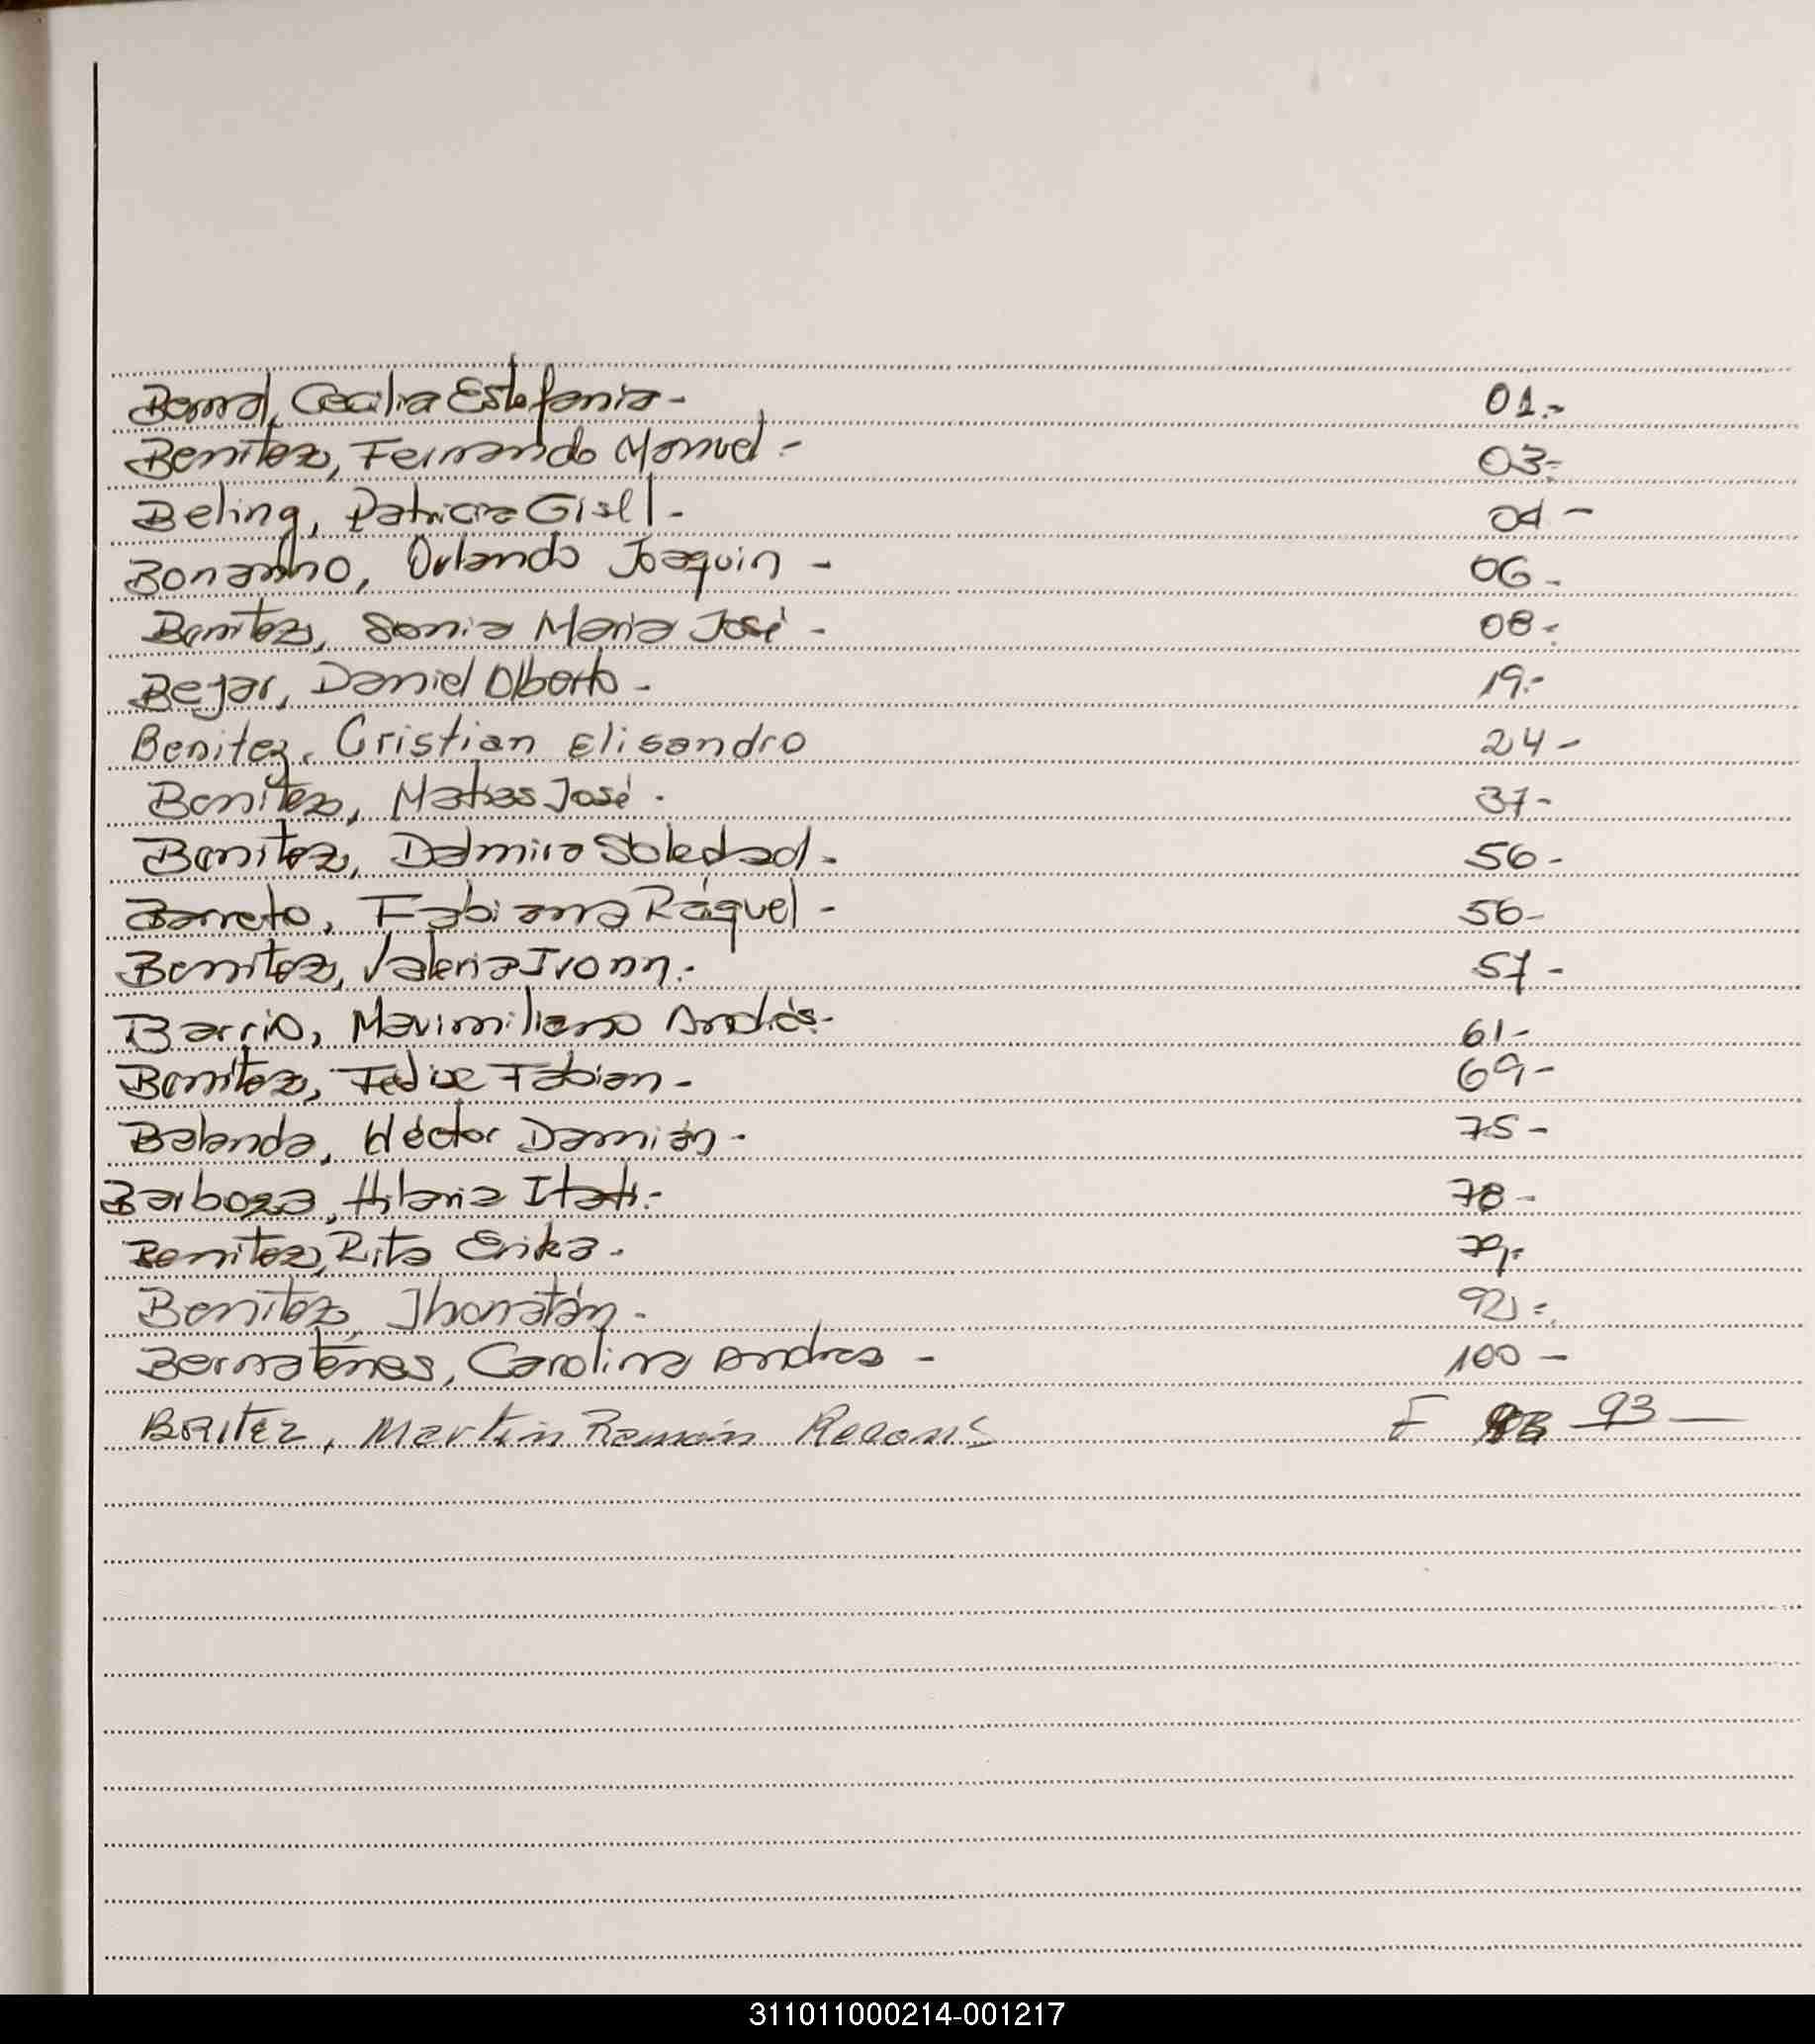 Benitez, Fernando Manuel - 03.-
Beling, Patricia Gisel - 04 -
Bonanno, Orlando Joaquin - 06 -
Benitez, Sonia Maria José - 08 -
Bejar, Daniel Alberto - 19.-
Benitez, Cristian Elisandro 24 -
Benitez, Matias José - 37-
Benitez, Dalmira Soledad - 56 -
Barreto, Fabiana Ráquel - 56-
Benitez, Valeria Ivonn.- 57 -
Barrio, Maximiliano Andrés.- 61-
Benitez, Fabian - 69-
Balanda, Héctor Damián - 75 -
Barboza, Hilaria Itati.- 78 -
Benitez, Rita Erika - 79.-
Benitez, Jhonatán - 92 -
Cecilia Estefania - 01.-
Carolina Andrea - 100 -
Martín Ramón F 93 —
311011000214-001217